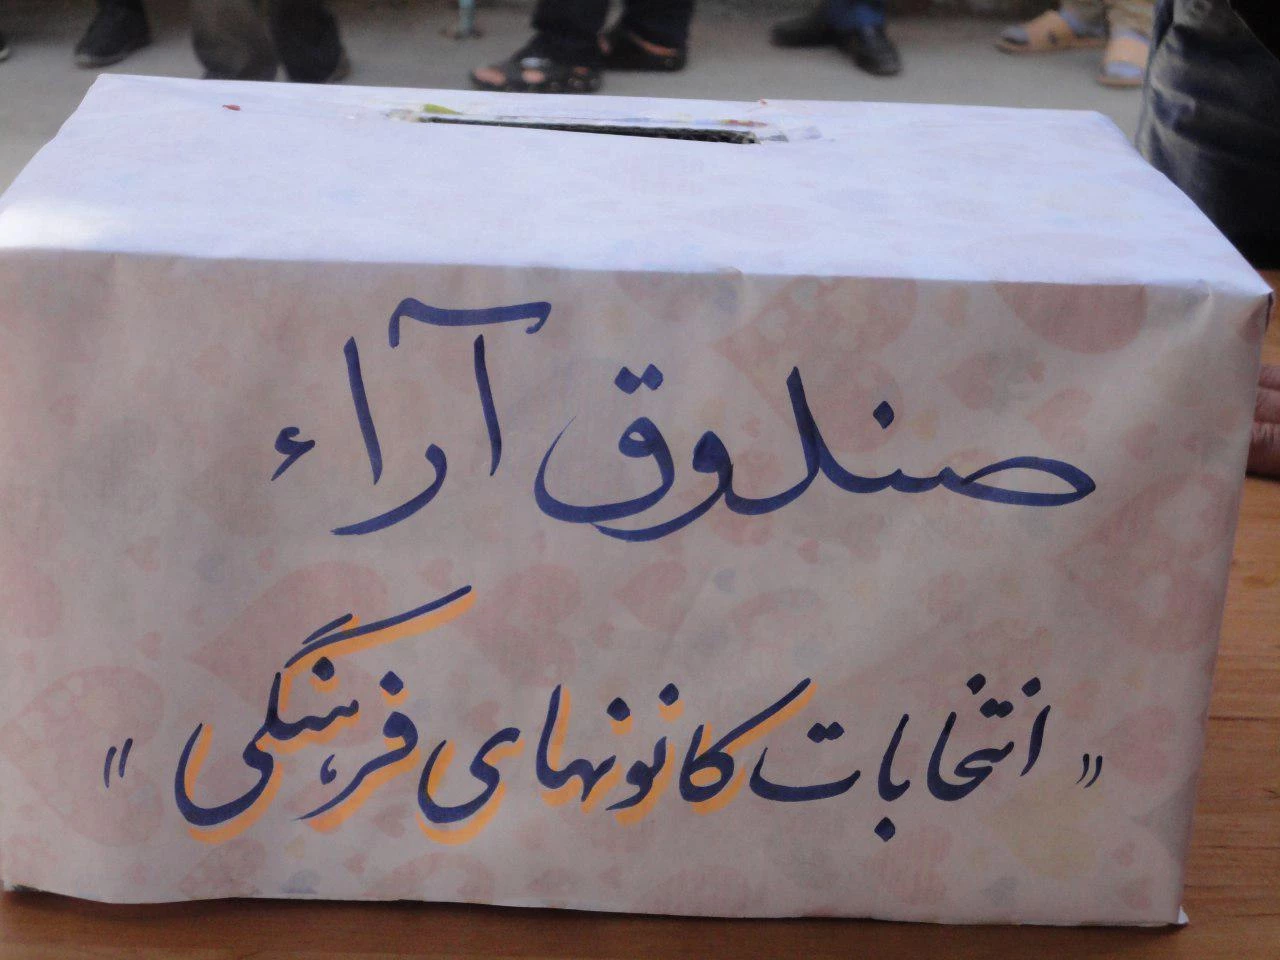 صندوق آراء
« انتخابات کانونهای فرهنگی »